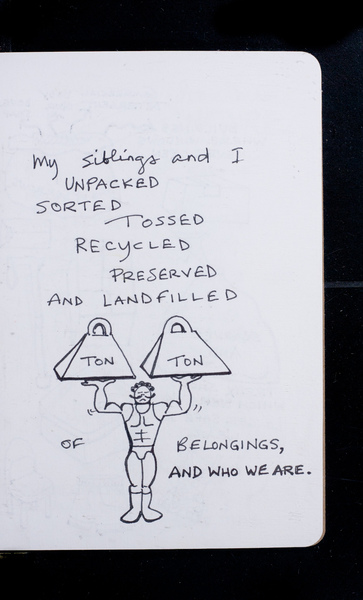 My siblings and I
UNPACKED
SORTED
TOSSED
RECYCLED
PRESERVED
AND LANDFILLED
TON TON
OF BELONGINGS,
AND WHO WE ARE.